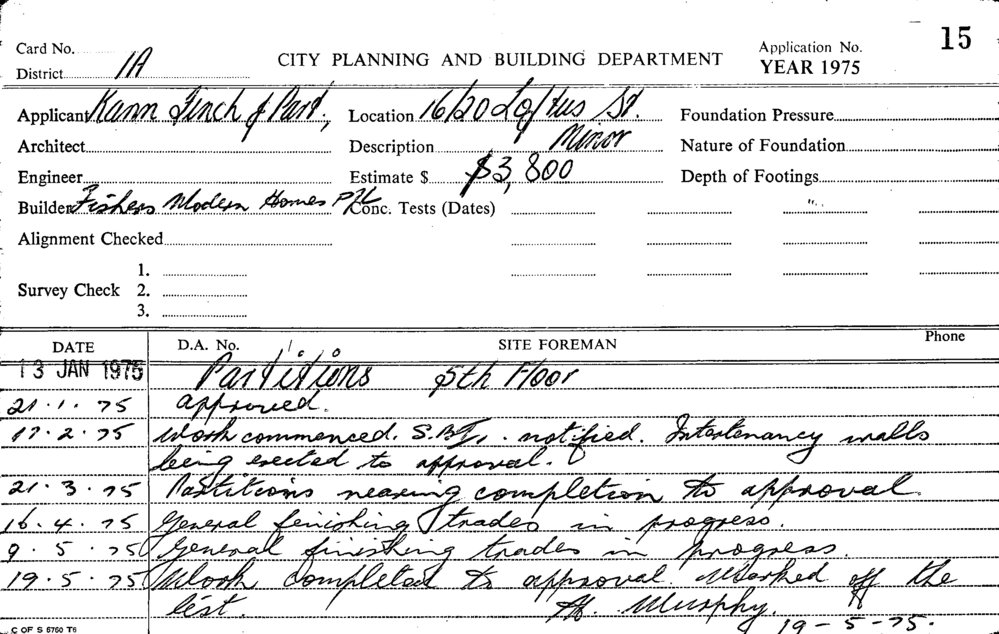 15
Card No.
CITY PLANNING AND BUILDING DEPARTMENT
Application No.
District 1A
YEAR 1975
Applicant Kann Finch & Part., Location 16/20 Loftus St. Foundation Pressure
Architect Description Minor Nature of Foundation
Engineer Estimate $ $3,800 Depth of Footings
Builder Fishers Modern Homes P/L Conc. Tests (Dates)
Alignment Checked
1.
Survey Check 2.
3.
DATE D.A. No. SITE FOREMAN Phone
13 JAN 1975 Partitions 5th Floor
21.1.75 approved.
17.2.75 Work commenced. notified. Intertenancy walls
being erected to approval.
21.3.75 Partitions nearing completion to approval.
16.4.75 General finishing trades in progress.
9.5.75 General finishing trades in progress.
19.5.75 Work completed to approval. Marked off the
list. Murphy.
19-5-75.
C OF S 6760 T6